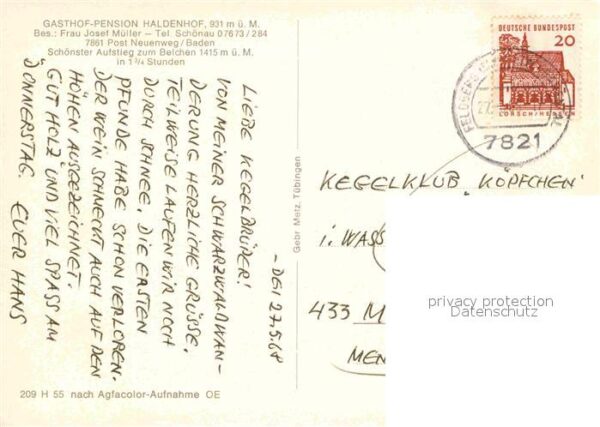 GASTHOF-PENSION HALDENHOF, 931 m ü. M.
Bes.: Frau Josef Müller — Tel. Schönau 07673/284
7861 Post Neuenweg/Baden
Schönster Aufstieg zum Belchen 1415 m ü. M.
in 1¾ Stunden
LIEBE KEGELBRÜDER!
VON MEINER SCHWARZWALDWAN-
DERUNG HERZLICHE GRÜSSE.
TEILWEISE LAUFEN WIR NOCH
DURCH SCHNEE. DIE ERSTEN
PFUNDE HABE SCHON VERLOREN.
DER WEIN SCHMECKT AUCH AUF DEN
HÖHEN AUSGEZEICHNET.
GUT HOLZ UND VIEL SPASS AM
DONNERSTAG. EUER HANS
27.5.68
Gebr. Metz, Tübingen
209 H 55 nach Agfacolor-Aufnahme OE
DEUTSCHE BUNDESPOST
20
LORSCH/HESSEN
27.
7821
KEGELKLUB "KÖPFCHEN"
i. WASS
433 M
MEN
privacy protection
Datenschutz